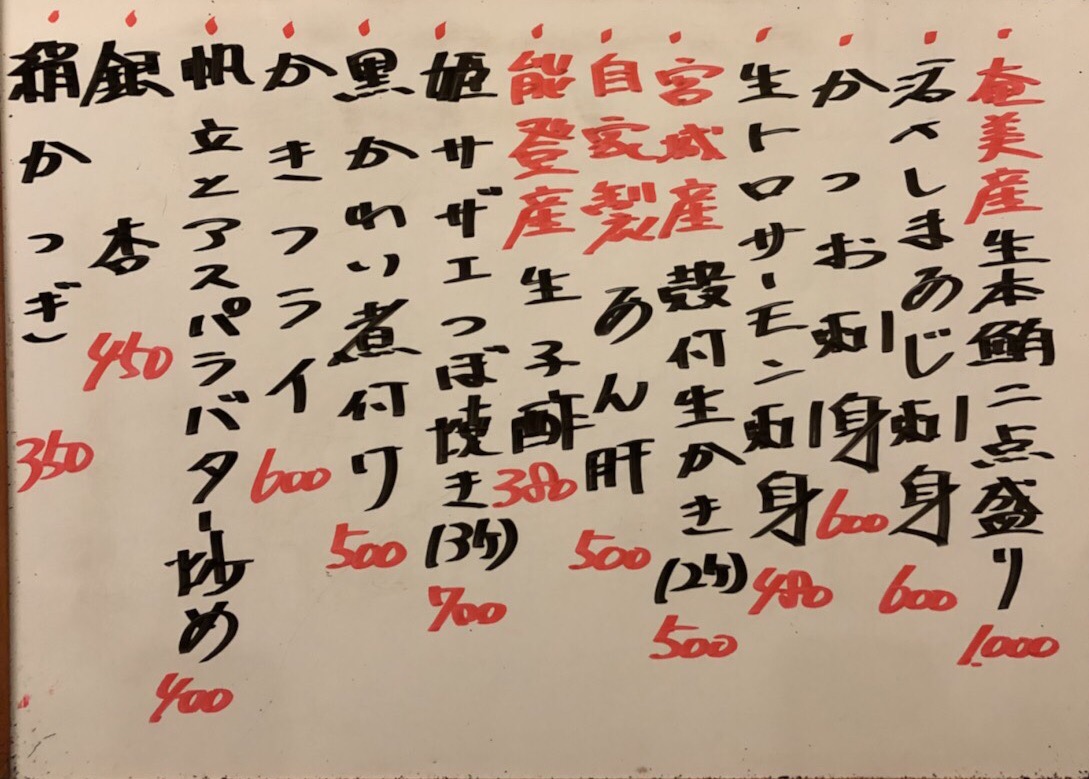 奄美産生本鮪二点盛り 1.000
活〆しまあじ刺身 600
かつお刺身 600
生トロサーモン刺身 480
宮城産殻付生かき(2ケ) 500
自家製あん肝 500
能登産生子酢 380
姫サザエつぼ焼き(3ケ) 700
黒かれい煮付け 500
かきフライ 600
帆立とアスパラバター炒め 400
銀杏 450
絹かつぎ 350